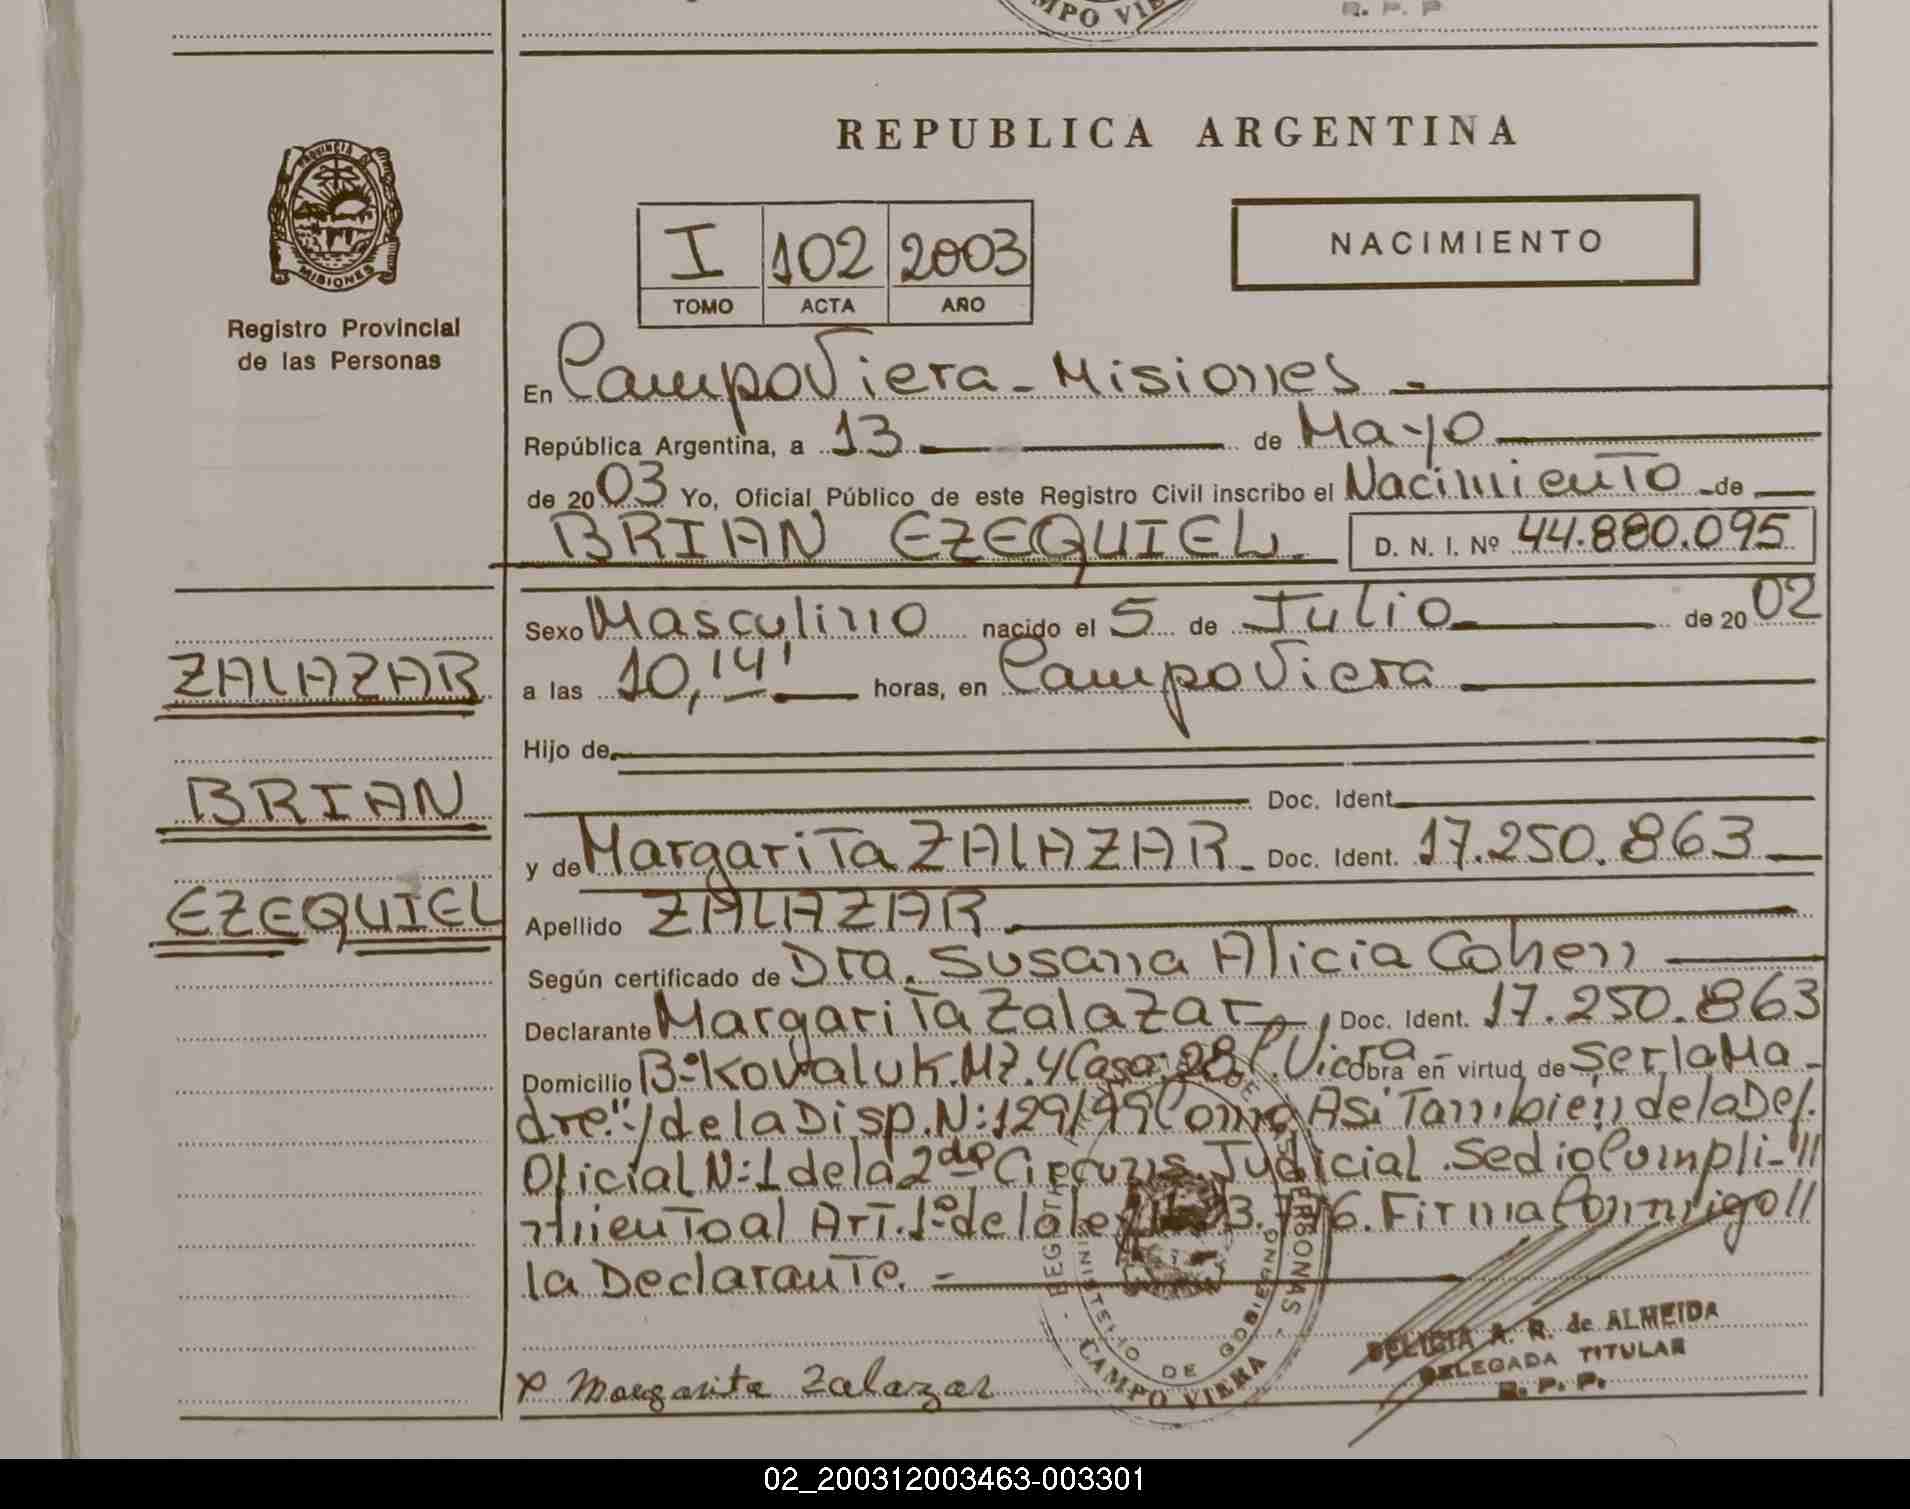 CAMPO VIE
R. P. P
PROVINCIA D
MISIONES
Registro Provincial
de las Personas
ZALAZAR
BRIAN
EZEQUIEL
REPUBLICA ARGENTINA
I 102 2003
TOMO ACTA AÑO
NACIMIENTO
En Campo Viera - Misiones -
República Argentina, a 13 de Mayo
de 2003 Yo, Oficial Público de este Registro Civil inscribo el Nacimiento de
BRIAN EZEQUIEL. D. N. I. Nº 44.880.095
Sexo Masculino nacido el 5 de Julio de 2002
a las 10,14' horas, en Campo Viera
Hijo de
Doc. Ident.
y de Margarita ZALAZAR - Doc. Ident. 17.250.863
Apellido ZALAZAR
Según certificado de Dra. Susana Alicia Cohen
Declarante Margarita Zalazar Doc. Ident. 17.250.863
Domicilio Bº Kovaluk. Mz. 4 Casa: 28 C. Viera - Obra en virtud de Ser la Ma-
dre." y de la Disp. N: 129/99 Como Asi Tambien de la Def.
Oficial N: 1 de la 2da Circuns. Judicial. Se dio Cumpli-//
miento al Art. 1º de la Firma Conmigo //
la Declarante. -
x Margarita Zalazar
PERSONAS
MINISTERIO DE GOBIERNO
CAMPO VIERA
DELICIA A. R. de ALMEIDA
DELEGADA TITULAR
R. P. P.
02_200312003463-003301